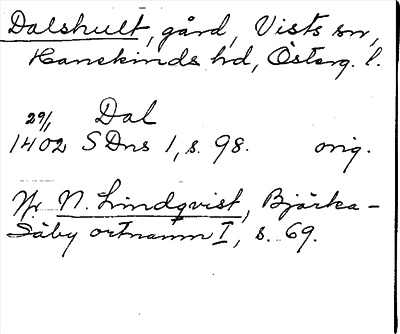 Dalshult, gård, Vists sn,
Hanekinds hd, Österg. l.
29/1 Dal
1402 SDns 1, s. 98. orig.
Hr N. Lindqvist, Bjärka-
Säby ortnamn I, s. 69.